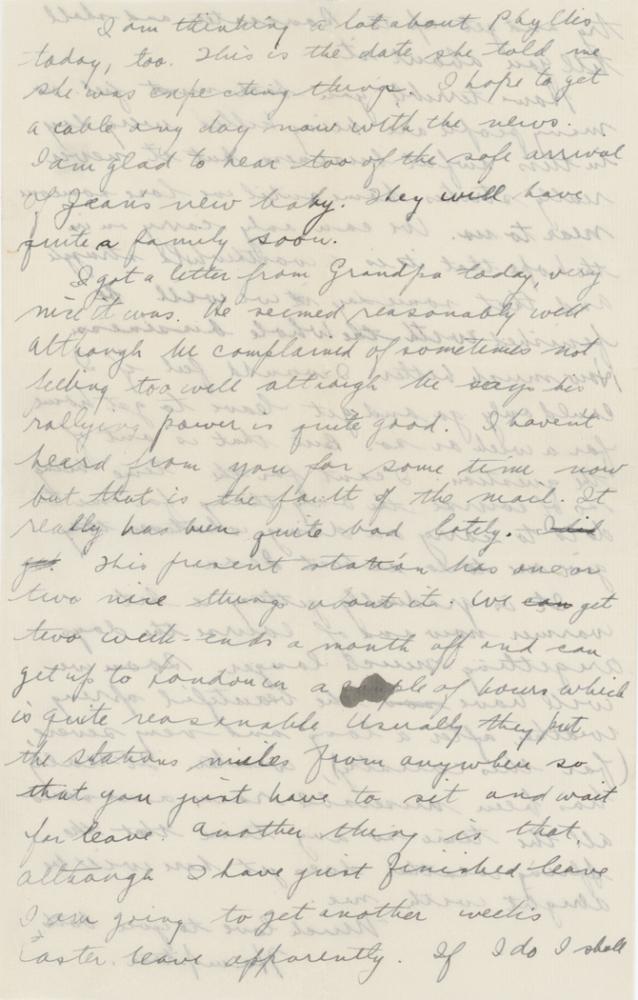 I am thinking a lot about Phyllis
today, too. This is the date she told me
she was expecting things. I hope to get
a cable any day now with the news.
I am glad to hear too of the safe arrival
of Jean's new baby. They will have
quite a family soon.
I got a letter from Grandpa today, very
nice it was. He seemed reasonably well
although he complained of sometimes not
feeling too well although he says his
rallying power is quite good. I haven't
heard from you for some time now
but that is the fault of the mail. It
really has been quite bad lately. I did
get. This present station has one or
two nice things about it. We can get
two week-ends a month off and can
get up to London in a couple of hours which
is quite reasonable. Usually they put
the stations miles from anywhere so
that you just have to sit and wait
for leave. Another thing is that,
although I have just finished leave
I am going to get another week's
Easter leave apparently. If I do I shall